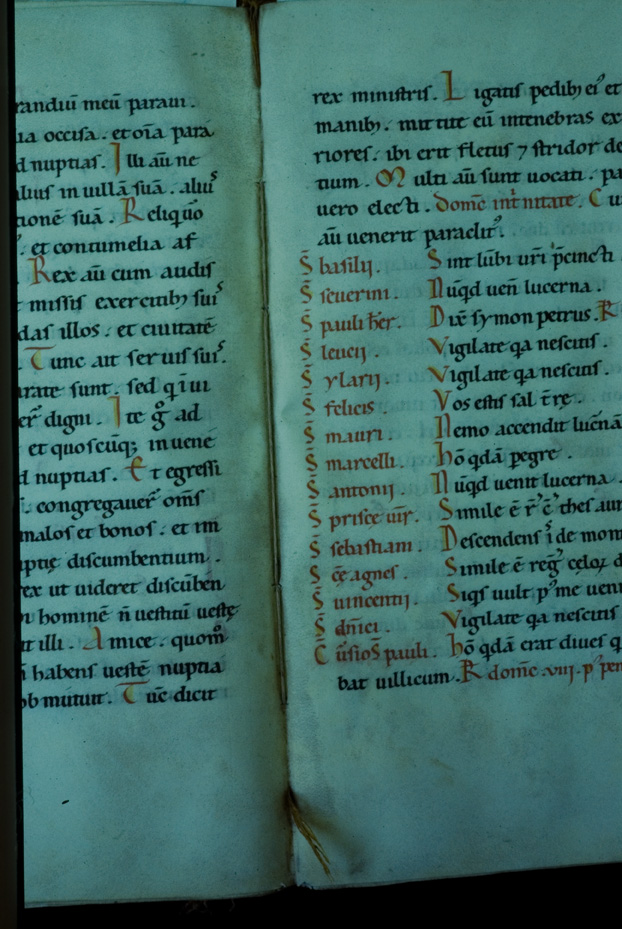 randiū meū paraui.
ia occisa. et oīa para
d nuptias. Illi aū ne
alius in uillā suā. aliuˢ
tionē suā. Reliquo
. et contumelia af
Rex aū cum audis
missis exercitibȝ suiˢ
das illos. et ciuitatē
. Tunc ait seruis suiˢ.
arate sunt. sed qͥ iui
erᷣ digni. Ite gͦ ad
et quoscūqȝ inuene
d nuptias. Et egressi
congregauerᷣ om̄s
malos et bonos. et im
ptię discumbentium.
ex ut uideret discūben
hominē n̄ uestitū uestę
t illi. Amice. quom̊
habens uestē nuptia
ob mutuit. Tūc dicit
rex ministris. Ligatis pedibȝ eiꝰ et
manibȝ. mittite eū intenebras ex
riores. ibi erit fletus ⁊ stridor de
tium. Multi aū sunt uocati. pa
uero electi. Domē int̄ nitate. C u
aū uenerit paraclitꝰ.
S̄ basilij. Sint lūbi ur̄i p̄cincti
S̄ seuerini. Nūqd uen̄ lucerna.
S̄ pauli her̄. Dix̄ symon petrus. R
S̄ leucij. Vigilate qa nescitis.
S̄ ylarij. Vigilate qa nescitis.
S̄ felicis. Vos estis sal t̄rę.
S̄ mauri. Nemo accendit lucn̄ā
S̄ marcelli. hō qdā pegre.
S̄ antonij. Nūqd uenit lucerna.
S̄ priscę uir̄. Simile ē r̄ c̄ thesaur
S̄ sebastiani. Descendens i̊ de mon
S̄ cę agnes. Simile ē reḡ celoꝝ
S̄ uincentij. Siqs uult pꝰ me ueni
S̄ dn̄ici. Vigilate qa nescitis
C̄ ūsioS pauli. hō qdā erat diues q
bat uillicum. R domē .viij. pꝰ pen